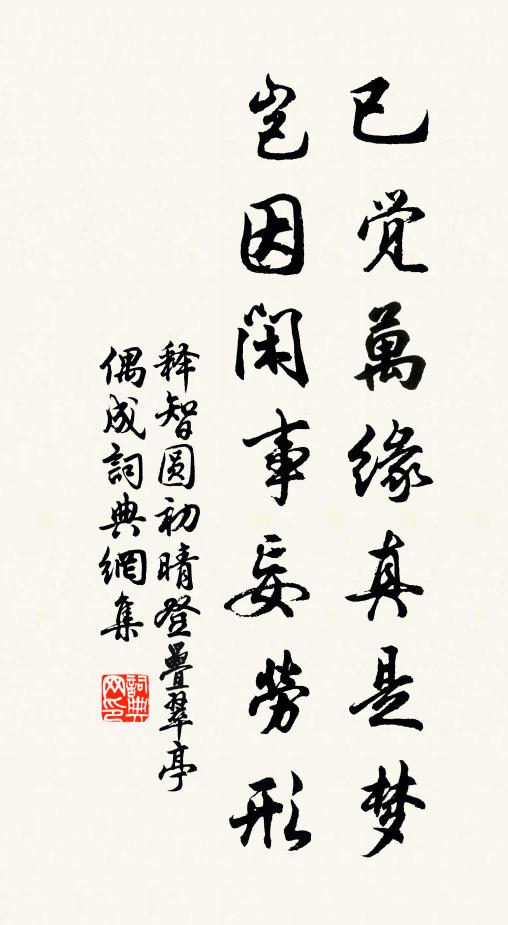 已覚萬緣真是梦
岂因閑事妄勞形
释智圆初晴登疊翠亭
偶成詞典網集
詞典网印